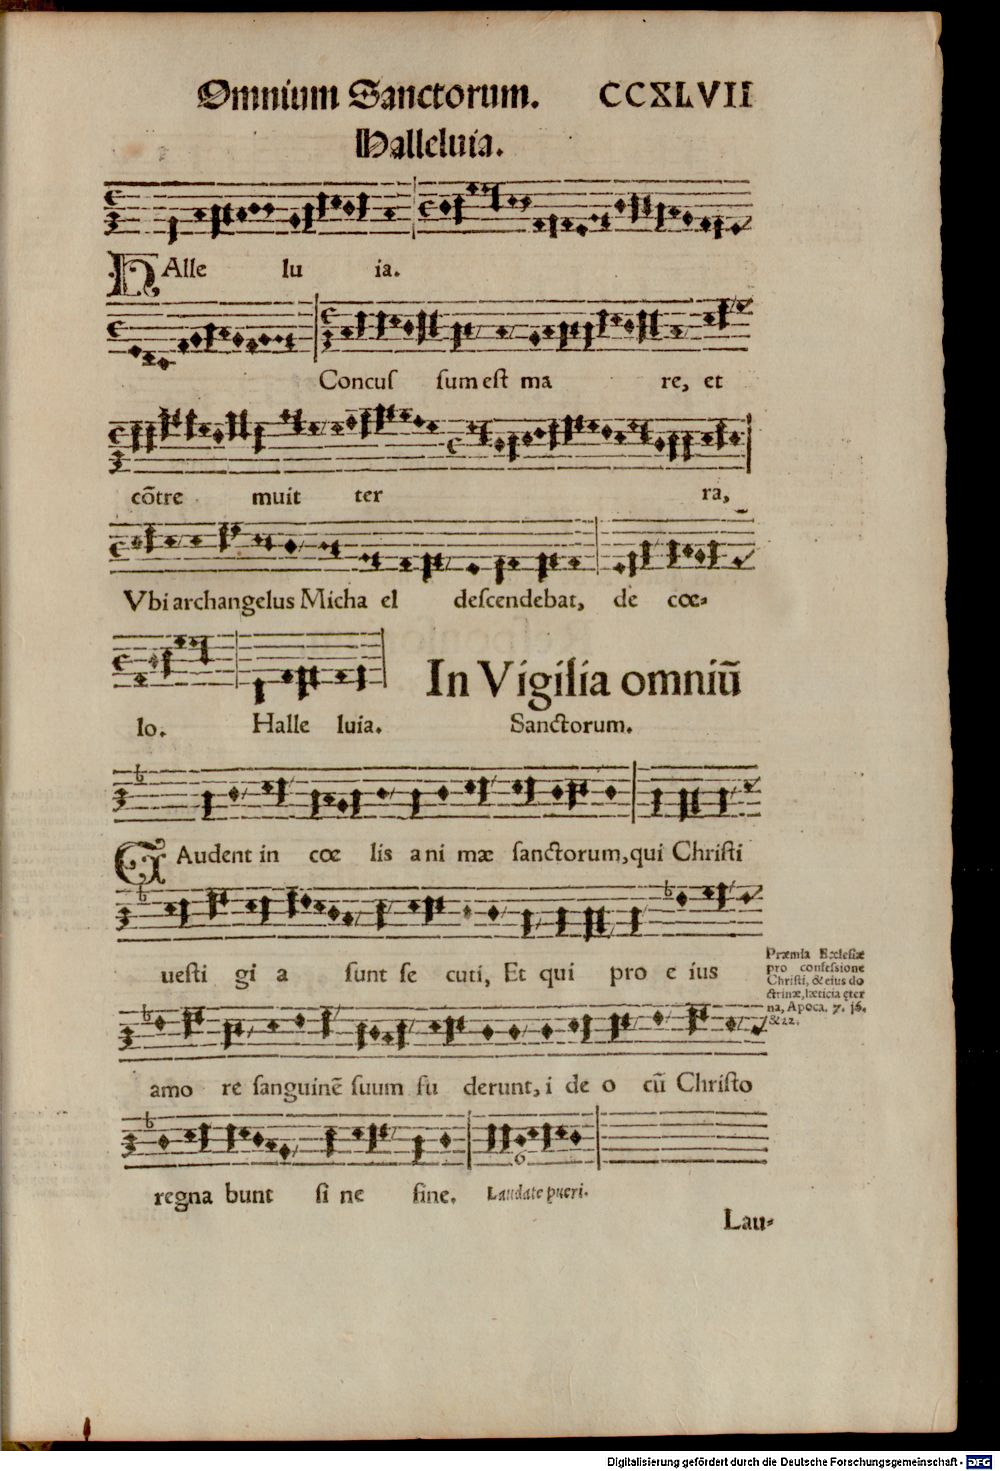 Omnium Sanctorum. CCXLVII
Halleluia.
HAlle lu ia.
Concuſ ſum eſt ma re, et
cõtre muit ter ra,
Vbi archangelus Micha el deſcendebat, de cœ-
lo. Halle luia.
In Vigilia omniũ
Sanctorum.
GAudent in cœ lis a ni mæ ſanctorum, qui Chriſti
ueſti gi a ſunt ſe cuti, Et qui pro e ius
Præmia Eccleſiæ
pro confeſsione
Chriſti, & eius do
ctrinæ, læticia ęter
na, Apoca. 7. 16.
& 22.
amo re ſanguinẽ ſuum fu derunt, i de o cũ Chriſto
regna bunt ſi ne fine. Laudate pueri.
6
Lau-
Digitalisierung gefördert durch die Deutsche Forschungsgemeinschaft - DFG